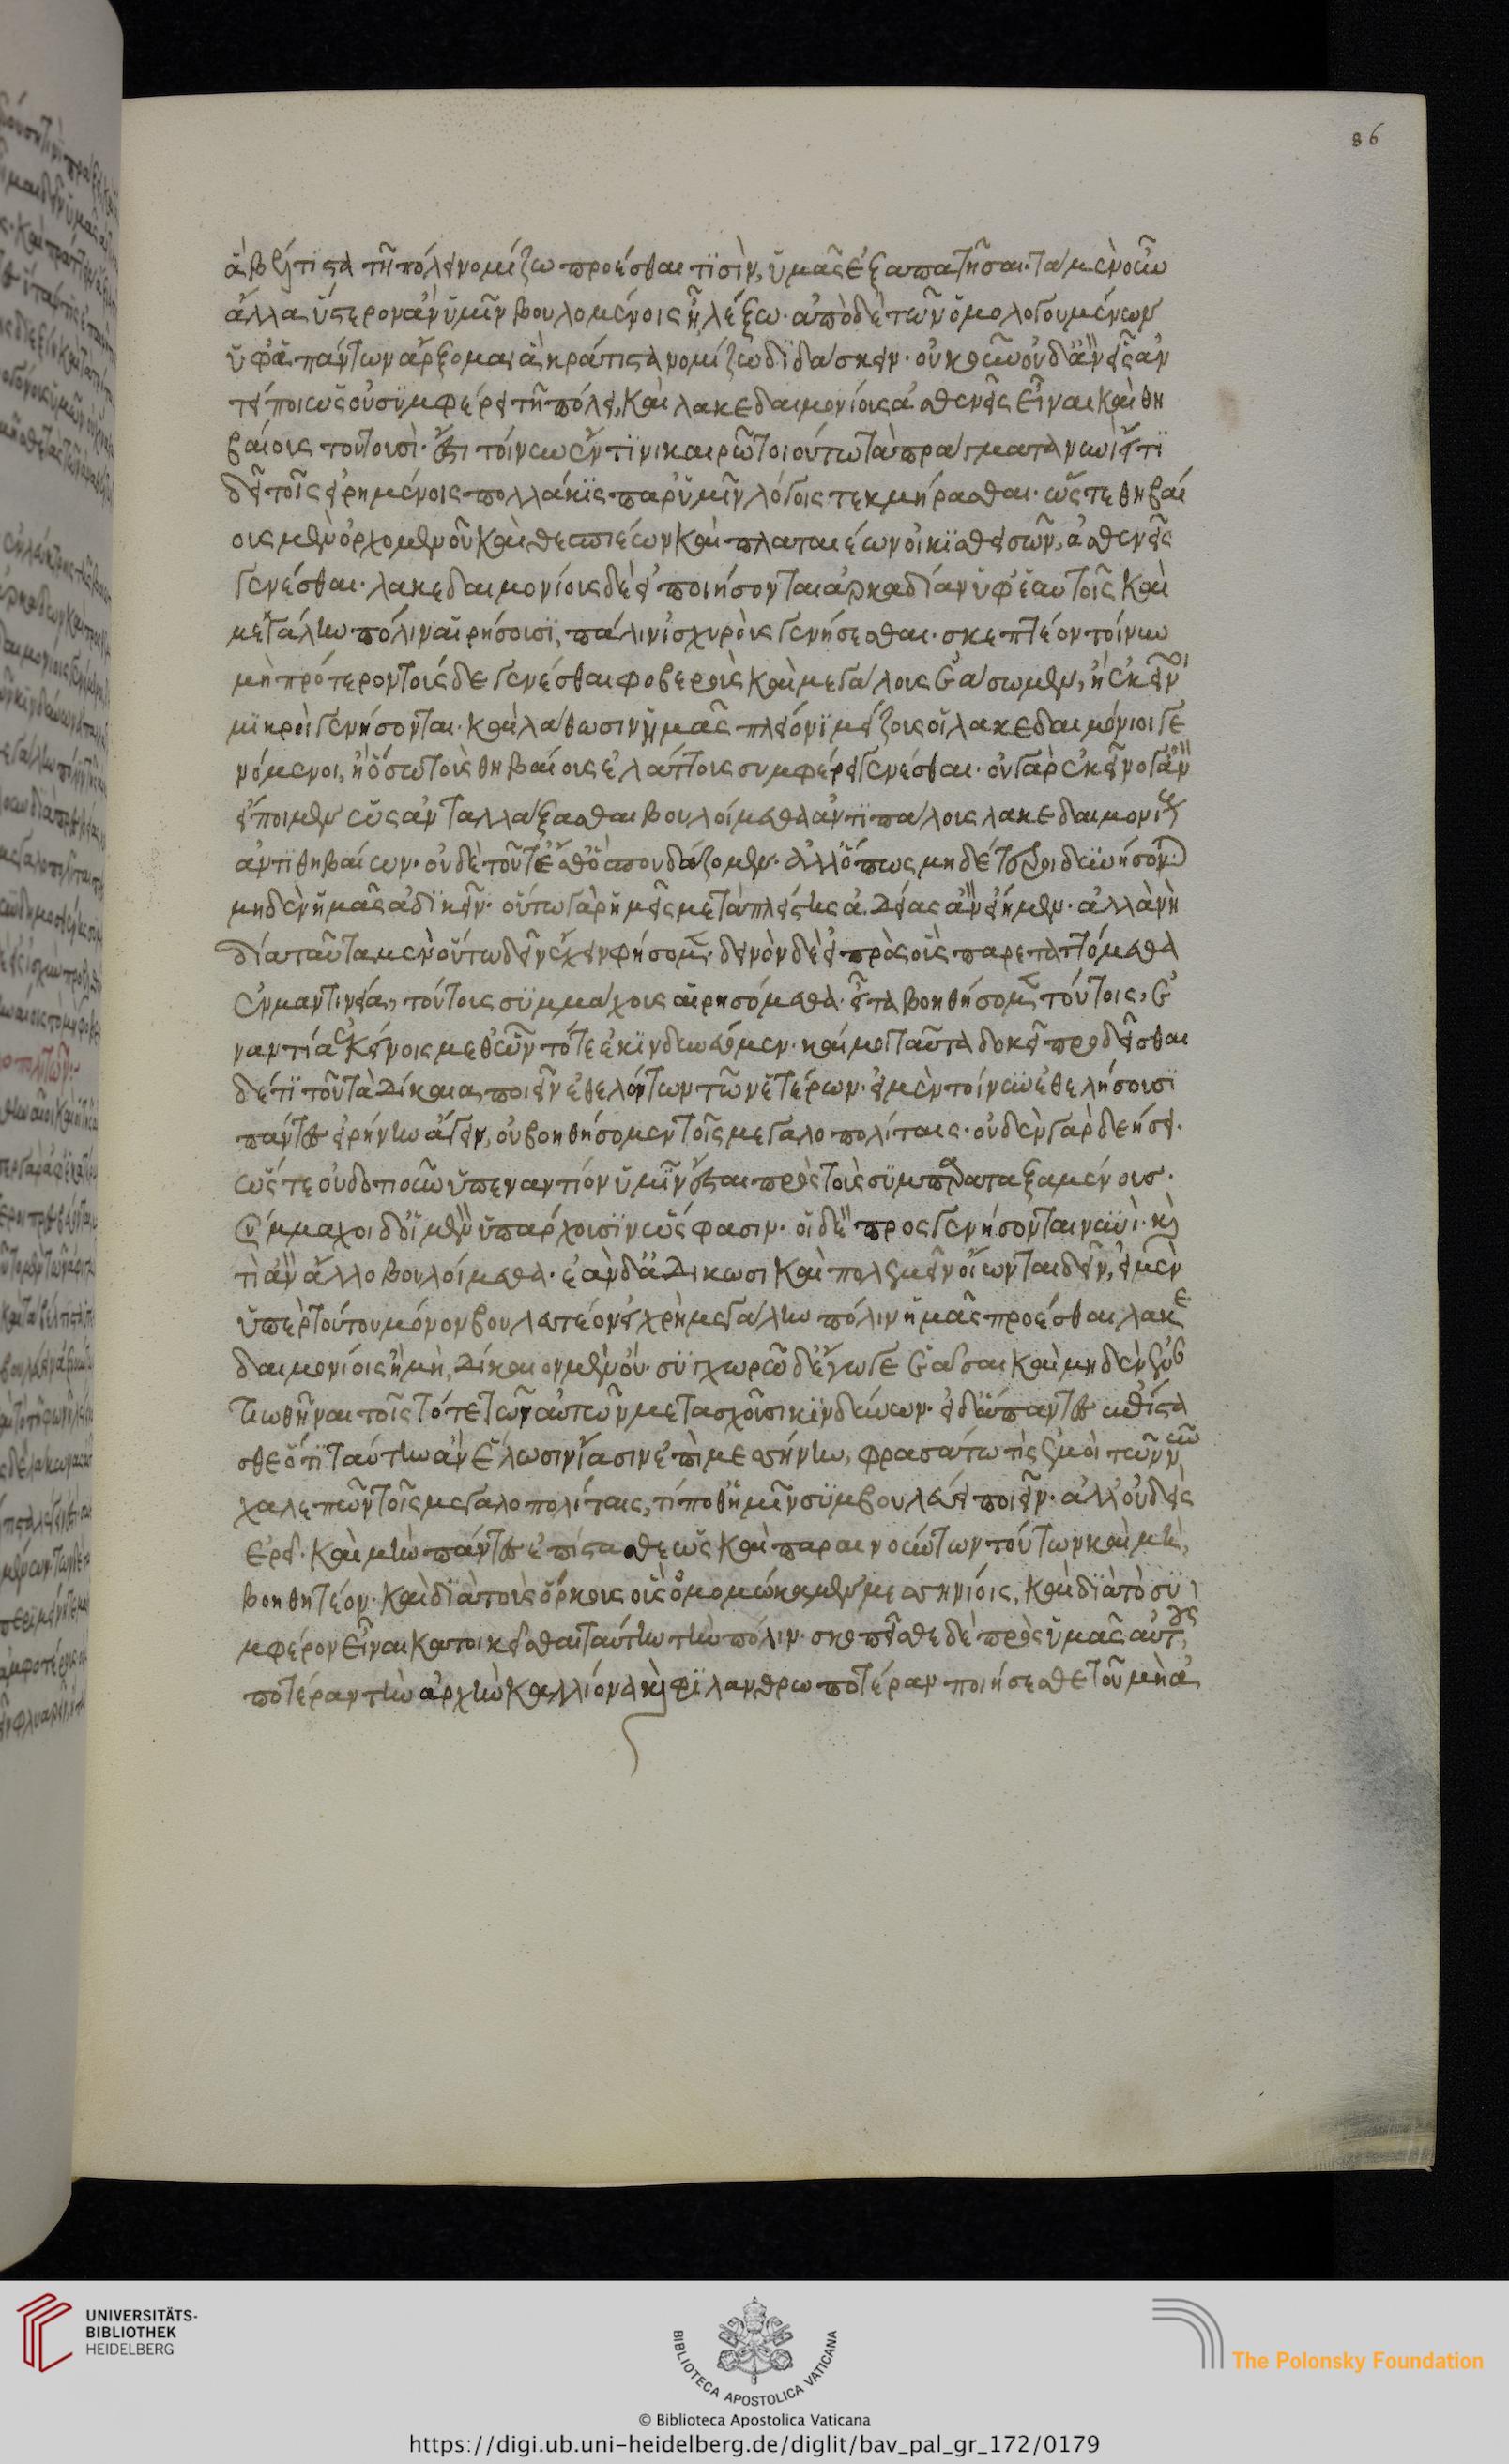 86
ἃ βέλτιστα τῆ πόλει νομίζω προέσθαι τισὶν, ὑμᾶς ἐξαπατῆσαι. τὰ μὲν οὖν
ἄλλα ὕστερον ἂν ὑμῖν βουλομένοις ἦ λέξω. ἀπὸ δὲ τῶν ὁμολογουμένων
ὑφ' ἁπάντων ἄρξομαι ἃ κράτιστα νομίζω διδάσκειν. οὐκοῦν οὐδ' ἂν εἷς ἀν
τείποι ὡς οὐ συμφέρει τῆ πόλει, καὶ λακεδαιμονίους ἀσθενεῖς εἶναι καὶ θη
βαίους τουτουσί. ἔστι τοίνυν ἔν τινι καιρῶ τοιούτω τὰ πράγματα νυνὶ εἴ τι
δεῖ τοῖς εἰρημένοις πολλάκις παρ' ὑμῖν λόγοις τεκμήρασθαι. ὥστε θηβαί
ους μὲν ὀρχομενοῦ καὶ θεσπιέων καὶ πλαταιέων οἰκισθεισῶν, ἀσθενεῖς
γενέσθαι. λακεδαιμονίους δὲ εἰ ποιήσονται ἀρκαδίαν ὑφ' ἑαυτοῖς καὶ
μεγάλην πόλιν αἱρήσουσι, πάλιν ἰσχυροὺς γενήσεσθαι. σκεπτέον τοίνυν
μὴ πρότερον τούσδε γενέσθαι φοβεροὺς καὶ μεγάλους ἐάσωμεν, ἢ 'κεῖνοι
μικροὶ γενήσονται. καὶ λάθωσιν ἡμᾶς πλείονι μείζους οἱ λακεδαιμόνιοι γε
νόμενοι, ἢ ὅσω τοὺς θηβαίους ἐλάττους συμφέρει γενέσθαι. οὐ γὰρ ἐκεῖνό γ' ἂν
εἴποιμεν ὡς ἀνταλλάξασθαι βουλοίμεθα ἀντιπάλους λακεδαιμονίους
ἀντὶ θηβαίων. οὐδὲ τοῦτ' ἔσθ' ὃ σπουδάζομεν. ἀλλ' ὅπως μηδέτεροι δυνήσονται
μηδὲν ἡμᾶς ἀδικεῖν. οὕτω γὰρ ἡμεῖς μετὰ πλείστης ἀδείας ἂν εἴημεν. ἀλλὰ νὴ
δία ταῦτα μὲν οὕτω δεῖν ἔχειν φήσομεν. δεινὸν δὲ εἰ πρὸς οὓς παρεταττόμεθα
ἐν μαντινεία, τούτους συμμάχους αἱρησόμεθα. εἶτα βοηθήσομεν τούτοις, ἐ
ναντία ἐκείνοις μεθ' ὧν τότε ἐκινδυνεύομεν. κἀμοὶ ταῦτα δοκεῖ προσδεῖσθαι
δ' ἔτι τοῦ τὰ δίκαια ποιεῖν ἐθελόντων τῶν ἑτέρων. εἰ μὲν τοίνυν ἐθελήσουσι
πάντες εἰρήνην ἄγειν, οὐ βοηθήσομεν τοῖς μεγαλοπολίταις. οὐδὲν γὰρ δεήσει.
ὥστε οὐδοτιοῦν ὑπεναντίον ὑμῖν ἔσται πρὸς τοὺς συμπαραταξαμένους.
σύμμαχοι δ' οἳ μὲν ὑπάρχουσιν ὥς φασιν. οἱ δὲ προσγενήσονται νυνί. καὶ
τί ἂν ἄλλο βουλοίμεθα. ἐὰν δ' ἀδικῶσι καὶ πολεμεῖν οἴωνται δεῖν, εἰ μὲν
ὑπὲρ τούτου μόνον βουλευτέον εἰ χρὴ μεγάλην πόλιν ἡμᾶς προέσθαι λακε
δαιμονίοις ἢ μὴ, δίκαιον μὲν οὔ. συγχωρῶ δ' ἔγωγε ἐᾶσαι καὶ μηδὲν ἐναν
τιωθῆναι τοῖς τότε τῶν αὐτῶν μετασχοῦσι κινδύνων. εἰ δ' ἅπαντες ἐπίστα
σθε ὅτι ταύτην ἂν ἕλωσιν ἴασιν ἐπὶ μεσσήνην, φρασάτω τὶς ἐμοὶ τῶν νῦν
χαλεπῶν τοῖς μεγαλοπολίταις, τί ποθ' ἡμῖν συμβουλεύει ποιεῖν. ἀλλ' οὐδεὶς
ἐρεῖ. καὶ μὴν πάντες ἐπίστασθε ὡς καὶ παραινούντων τούτων καὶ μὴ,
βοηθητέον. καὶ διὰ τοὺς ὅρκους οὓς ὀμωμόκαμεν μεσσηνίοις, καὶ διὰ τὸ συ
μφέρον εἶναι κατοικεῖσθαι ταύτην τὴν πόλιν. σκοπεῖσθε δὲ πρὸς ὑμᾶς αὐτοὺς
ποτέραν τὴν ἀρχὴν καλλίονα καὶ φιλανθρωποτέραν ποιήσεσθε τοῦ μὴ ἀ
UNIVERSITÄTS-
BIBLIOTHEK
HEIDELBERG
BIBLIOTECA APOSTOLICA VATICANA
The Polonsky Foundation
© Biblioteca Apostolica Vaticana
https://digi.ub.uni-heidelberg.de/diglit/bav_pal_gr_172/0179